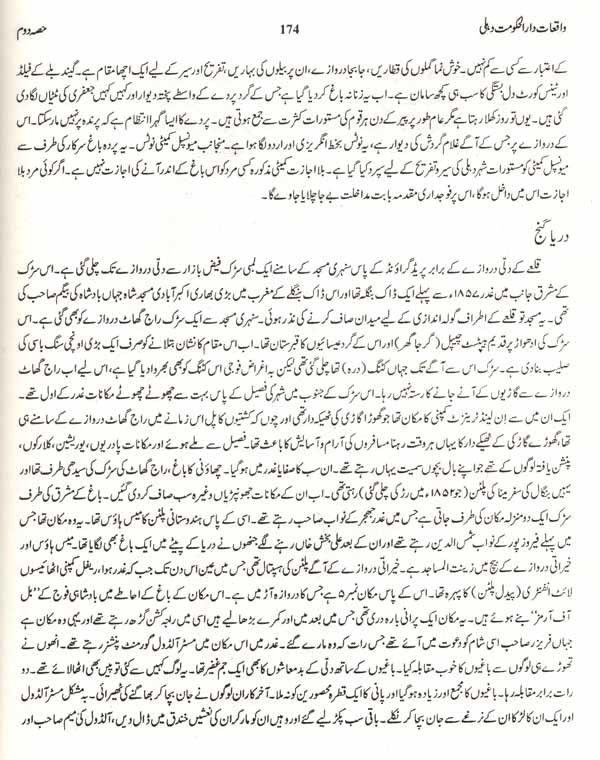 واقعات دارالحکومت دہلی 174 حصہ دوم
کے اعتبار سے کسی سے کم نہیں۔ خوش نما گملوں کی قطاریں، جا بجا دروازے، ان پر بیلوں کی بہاریں، تفریح اور سیر کے لیے ایک اچھا مقام ہے۔ گیند بلے کے فیلڈ
اور ٹینس کورٹ دل بستگی کا سب ہی کچھ سامان ہے۔ اب یہ زنانہ باغ کر دیا گیا ہے جس کے گرد پردے کے واسطے پختہ دیوار اور کہیں کہیں جعفری کی ٹٹیاں لگا دی
گئی ہیں۔ یوں تو روز کھلا رہتا ہے مگر عام طور پر پیر کے دن ہر قوم کی مستورات کثرت سے جمع ہوتی ہیں۔ پردے کا ایسا گہرا انتظام ہے کہ پرندہ پر نہیں مار سکتا۔ اس
کے دروازے پر جس کے آگے غلام گردش کی دیوار ہے، یہ نوٹس بخط انگریزی اور اردو لگا ہوا ہے۔ منجانب میونسپل کمیٹی نوٹس۔ یہ پردہ باغ سرکار کی طرف سے
میونسپل کمیٹی کو مستورات شہر دہلی کی سیر و تفریح کے لیے سپرد کیا گیا ہے۔ بلا اجازت کمیٹی مذکورہ کسی مرد کو اس باغ کے اندر آنے کی اجازت نہیں ہے۔ اگر کوئی مرد بلا
اجازت اس میں داخل ہو گا، اس پر فوجداری مقدمہ بابت مداخلت بے جا چلایا جاوے گا۔
دریا گنج
قلعے کے دلّی دروازے کے برابر پریڈ گراؤنڈ کے پاس سنہری مسجد کے سامنے ایک لمبی سڑک فیض بازار سے دلّی دروازے تک چلی گئی ہے۔ اس سڑک
کے مشرق جانب میں غدر ۱۸۵۷ء سے پہلے ایک ڈاک بنگلہ تھا اور اس ڈاک بنگلے کے مغرب میں بڑی بھاری اکبر آبادی مسجد شاہ جہاں بادشاہ کی بیگم صاحب کی
تھی۔ یہ مسجد تو قلعے کے اطراف گولہ اندازی کے لیے میدان صاف کرنے کی نذر ہوئی۔ سنہری مسجد سے ایک سڑک راج گھاٹ دروازے کو بھی گئی ہے۔ اس
سڑک کی ادھواڑ پر قدیم بپٹسٹ چیپل (گرجا گھر) اور اس کے گرد عیسائیوں کا قبرستان تھا۔ اب اس مقام کا نشان بتلانے کو صرف ایک بڑی اونچی سنگ باسی کی
صلیب بنا دی ہے۔ سڑک اس سے آگے تک جہاں کٹنگ (درہ) تھا چلی گئی تھی لیکن بہ اغراض فوجی اس کٹنگ کو بھی بھروا دیا گیا ہے، اس لیے اب راج گھاٹ
دروازے سے گاڑیوں کے آنے جانے کا رستہ نہیں رہا۔ اس سڑک کے جنوب میں شہر کی فصیل کے پاس بہت سے چھوٹے چھوٹے مکانات غدر کے اول تھے۔
ایک ان میں سے ان لینڈ ٹرینزٹ کمپنی کا مکان تھا جو گھوڑا گاڑی کی ٹھیکہ دار تھی اور چوں کہ کشتیوں کا پل اس زمانے میں راج گھاٹ دروازے کے سامنے ہی
تھا، گھوڑے گاڑی کے ٹھیکے دار کا یہاں ہر وقت رہنا مسافروں کی آرام و آسایش کا باعث تھا۔ فصیل سے ملے ہوئے اور مکانات پادریوں، یوریشین، کلارکوں،
پنشن یافتہ لوگوں کے تھے جو اپنے بال بچوں سمیت یہاں رہتے تھے۔ ان سب کا صفایا غدر میں ہو گیا۔ چھاؤنی کا باغ، راج گھاٹ کی سڑک کی سیدھی طرف تھا اور
یہیں بنگال کی سفر مینا کی پلٹن (جو ۱۸۵۲ء میں رڑکی چلی گئی) رہتی تھی۔ اب ان کے مکانات جھونپڑیاں وغیرہ سب صاف کر دی گئیں۔ باغ کے مشرق کی طرف
سڑک ایک دو منزلہ مکان کی طرف جاتی ہے جس میں غدر جھجر کے نواب صاحب رہتے تھے۔ اسی کے پاس ہندوستانی پلٹن کا میس ہاؤس تھا۔ یہ وہ مکان تھا جس
میں پہلے فیروز پور کے نواب شمس الدین رہتے تھے اور ان کے بعد علی بخش خاں رہنے لگے جنھوں نے دریا کے پیٹے میں ایک باغ بھی لگایا تھا۔ میس ہاؤس اور
خیراتی دروازے کے بیچ میں زینت المساجد ہے۔ خیراتی دروازے کے آگے پلٹن کی ہسپتال تھی جس میں عین اس دن تک جب کہ غدر ہوا، ریفل کمپنی اٹھائیسوں
لائٹ انفنٹری (پیدل پلٹن) کا پہرہ تھا۔ اس کے پاس مکان نمبر ۵ ہے جس کا دروازہ آڑ میں ہے۔ اس مکان کے باغ کے احاطے میں بادشاہی فوج کے ”بل
آف آرمز“ بنے ہوئے ہیں۔ یہ مکان ایک پرانی بارہ دری تھی جس میں بعد میں اور کمرے بڑھا لیے ہیں اسی میں راجہ کشن گڑھ رہتے تھے اور یہی وہ مکان ہے
جہاں فریزر صاحب اسی شام کو دعوت میں آئے تھے جس رات کہ وہ مارے گئے۔ غدر میں اس مکان میں مسٹر آلڈول گورمنٹ پنشنر رہتے تھے۔ انھوں نے
تھوڑے ہی لوگوں سے باغیوں کا خوب مقابلہ کیا۔ باغیوں کے ساتھ دلّی کے بدمعاشوں کا بھی ایک جم غفیر تھا۔ یہ لوگ کہیں سے کئی توپیں بھی اٹھا لائے تھے۔ دو
رات برابر مقابلہ رہا۔ باغیوں کا مجمع اور زیادہ ہو گیا اور پانی کا ایک قطرہ محصورین کو نہ ملا۔ آخر کار ان لوگوں نے جان بچا کر بھاگنے کی ٹھیرائی۔ بہ مشکل مسٹر آلڈول
اور ایک ان کا لڑکا ان کے نرغے سے جان بچا کر نکلے۔ باقی سب پکڑ لیے گئے اور وہیں ان کو مار کر ان کی نعشیں خندق میں ڈال دیں، آلڈول کی میم صاحب اور